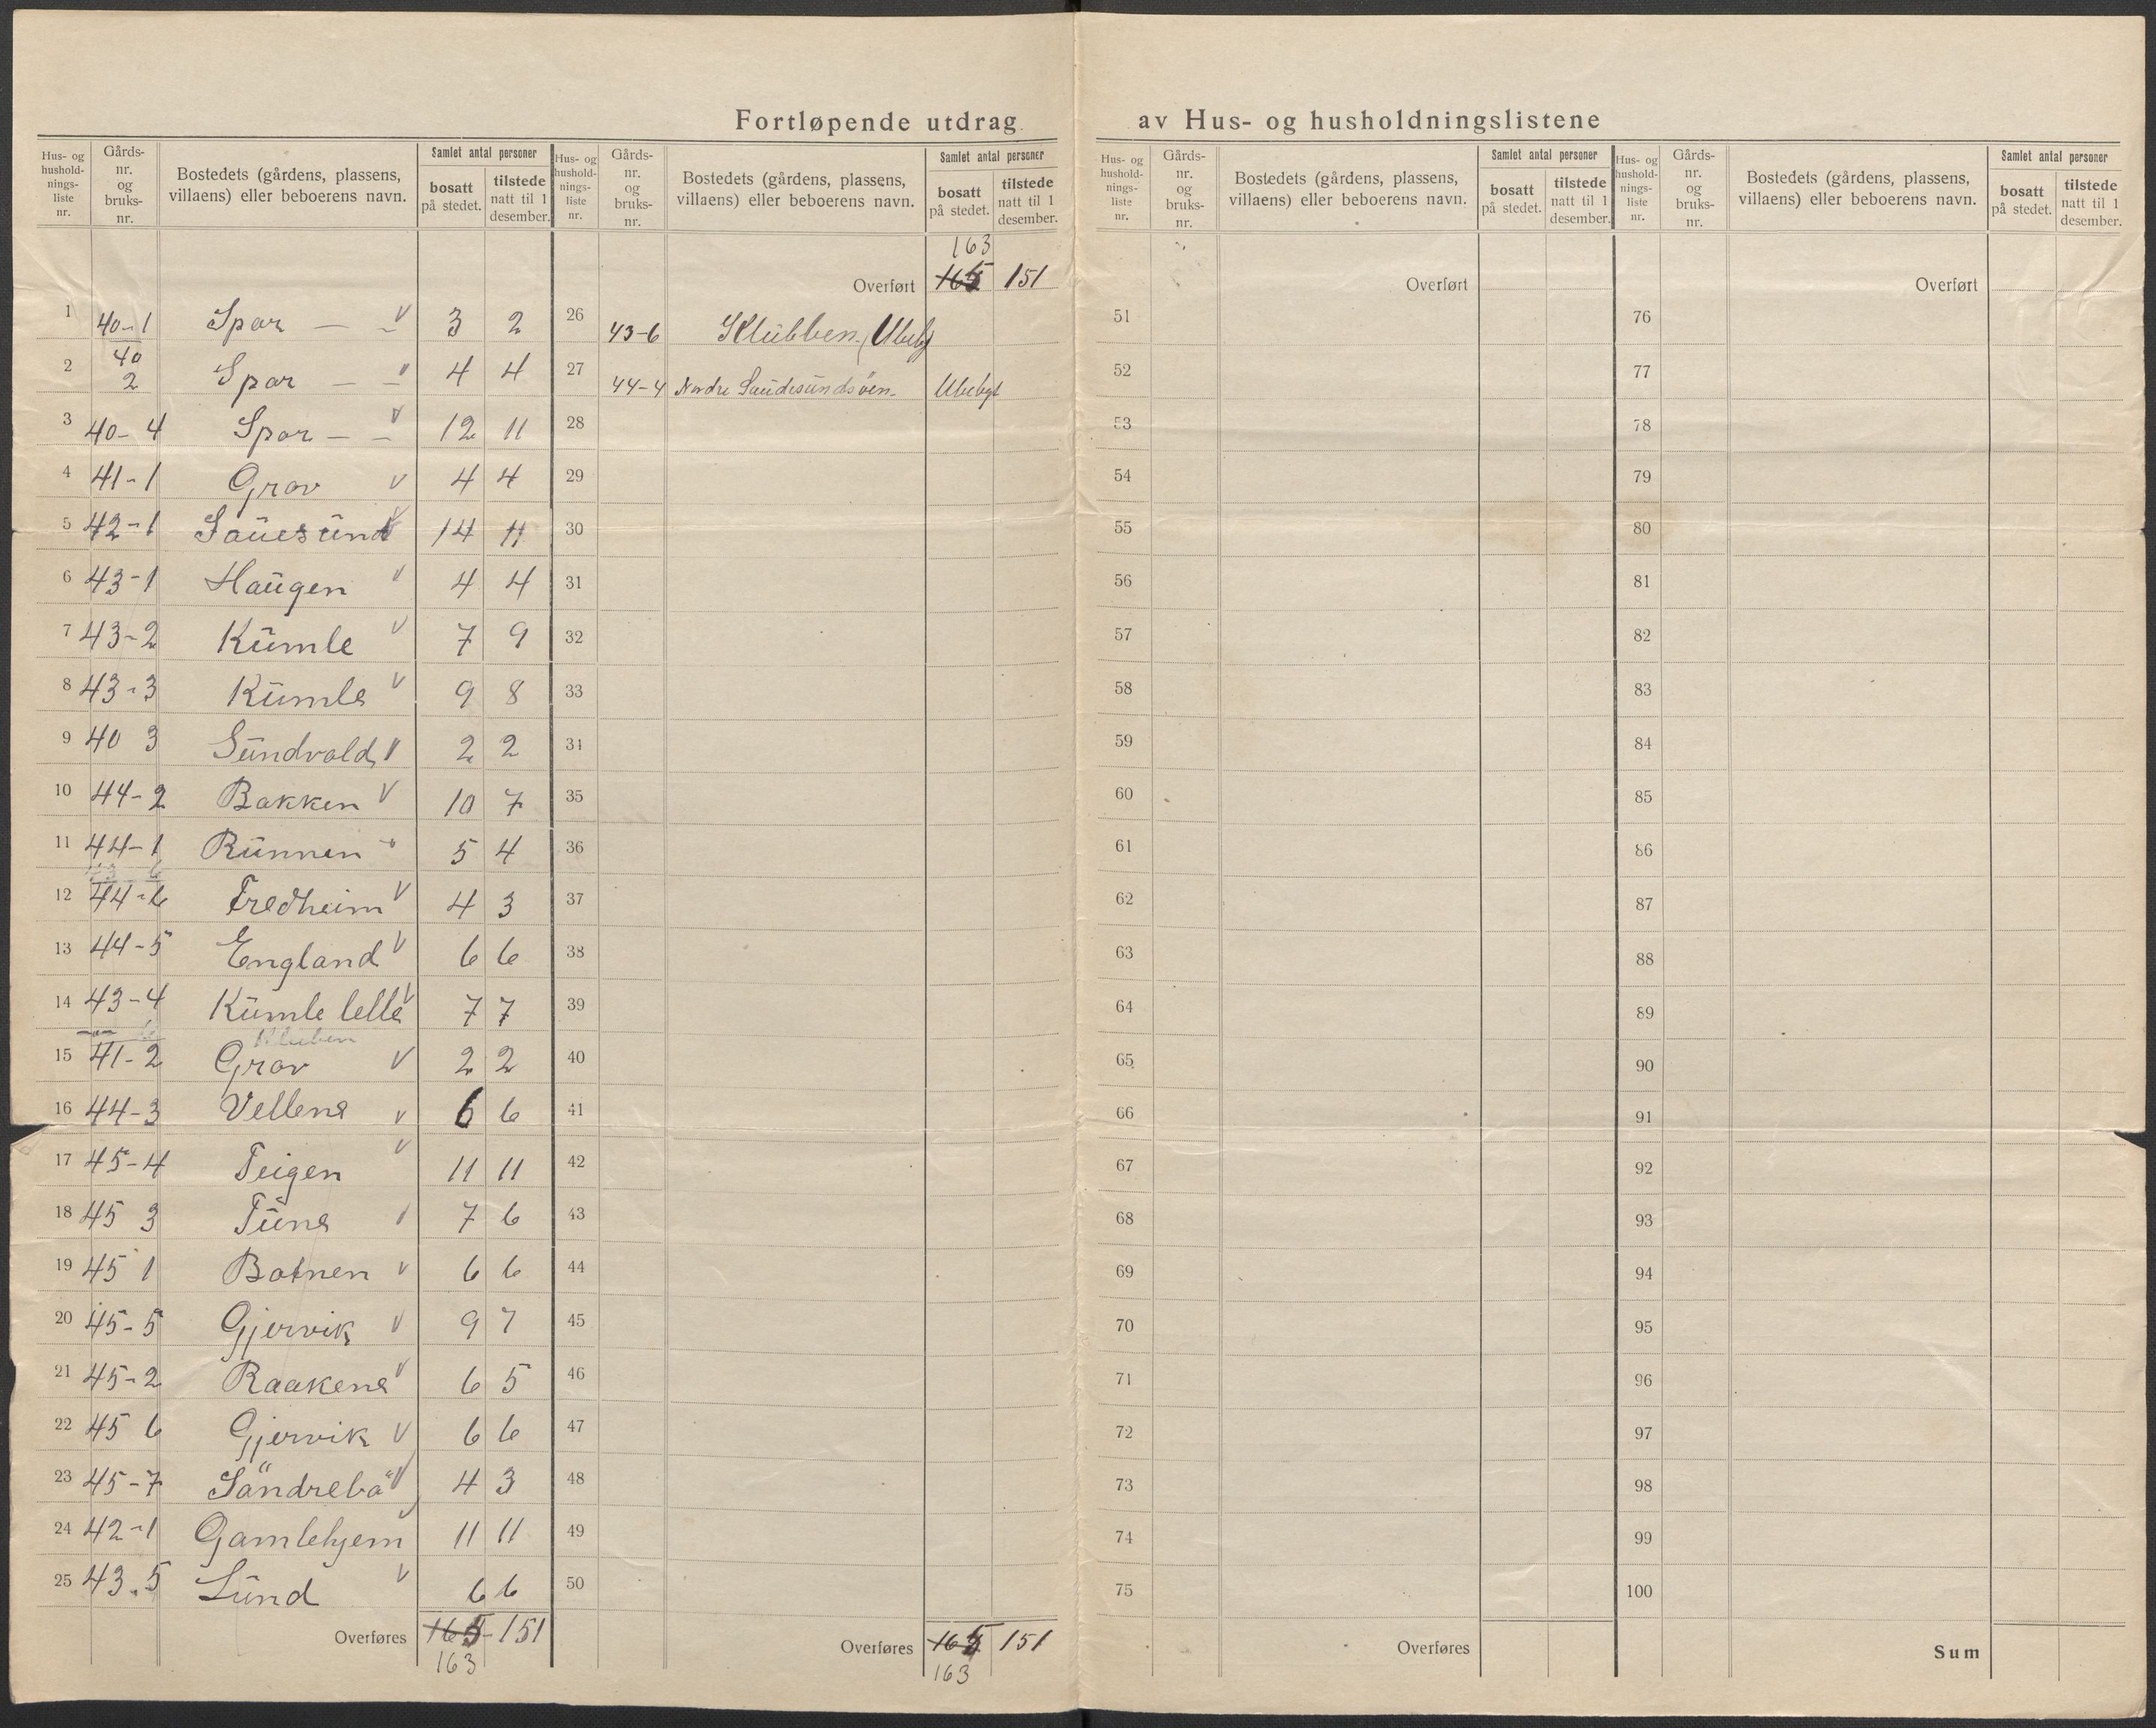 Fortløpende utdrag av Hus- og husholdningslistene
Hus- og husholdnings-liste nr. | Gårds-nr. og bruks-nr. | Bostedets (gårdens, plassens, villaens) eller beboerens navn. | Samlet antal personer | bosatt på stedet. | tilstede natt til 1 desember.
1 40-1 Spar — – V 3 2
2 40 2 Spar — – V 4 4
3 40-4 Spar — – V 12 11
4 41-1 Grov V 4 4
5 42-1 Saūesūnd V 14 11
6 43-1 Haūgen V 4 4
7 43-2 Kūmle V 7 9
8 43-3 Kūmle V 9 8
9 40 3 Sūndvold V 2 2
10 44-2 Bakken V 10 7
11 44-1 Rūnnen 5 4
12 44-6 Fredheim V 4 3
13 44-5 England V 6 6
14 43-4 Kūmle lelle V 7 7
15 41-2 Grov V 2 2
16 44-3 Vellene V 6 6
17 45-4 Teigen V 11 11
18 45 3 Tūne V 7 6
19 45 1 Botnen V 6 6
20 45-5 Gjervik V 9 7
21 45-2 Raakene V 6 5
22 45 6 Gjervik V 6 6
23 45-7 Sändrebä V 4 3
24 42-1 Gamlehjem V 11 11
25 43.5 Lūnd V 6 6
Overføres 165 - 151
163
Hus- og husholdnings-liste nr. | Gårds-nr. og bruks-nr. | Bostedets (gårdens, plassens, villaens) eller beboerens navn. | Samlet antal personer | bosatt på stedet. | tilstede natt til 1 desember.
163
Overført 165 151
26 43-6 Klūbben
27 44-4 Nordre Ubebygt
28
29
30
31
32
33
34
35
36
37
38
39
40
41
42
43
44
45
46
47
48
49
50
Overføres 165 151
163
Hus- og husholdnings-liste nr. | Gårds-nr. og bruks-nr. | Bostedets (gårdens, plassens, villaens) eller beboerens navn. | Samlet antal personer | bosatt på stedet. | tilstede natt til 1 desember.
Overført
51
52
53
54
55
56
57
58
59
60
61
62
63
64
65
66
67
68
69
70
71
72
73
74
75
Overføres
Hus- og husholdnings-liste nr. | Gårds-nr. og bruks-nr. | Bostedets (gårdens, plassens, villaens) eller beboerens navn. | Samlet antal personer | bosatt på stedet. | tilstede natt til 1 desember.
Overført
76
77
78
79
80
81
82
83
84
85
86
87
88
89
90
91
92
93
94
95
96
97
98
99
100
Sum